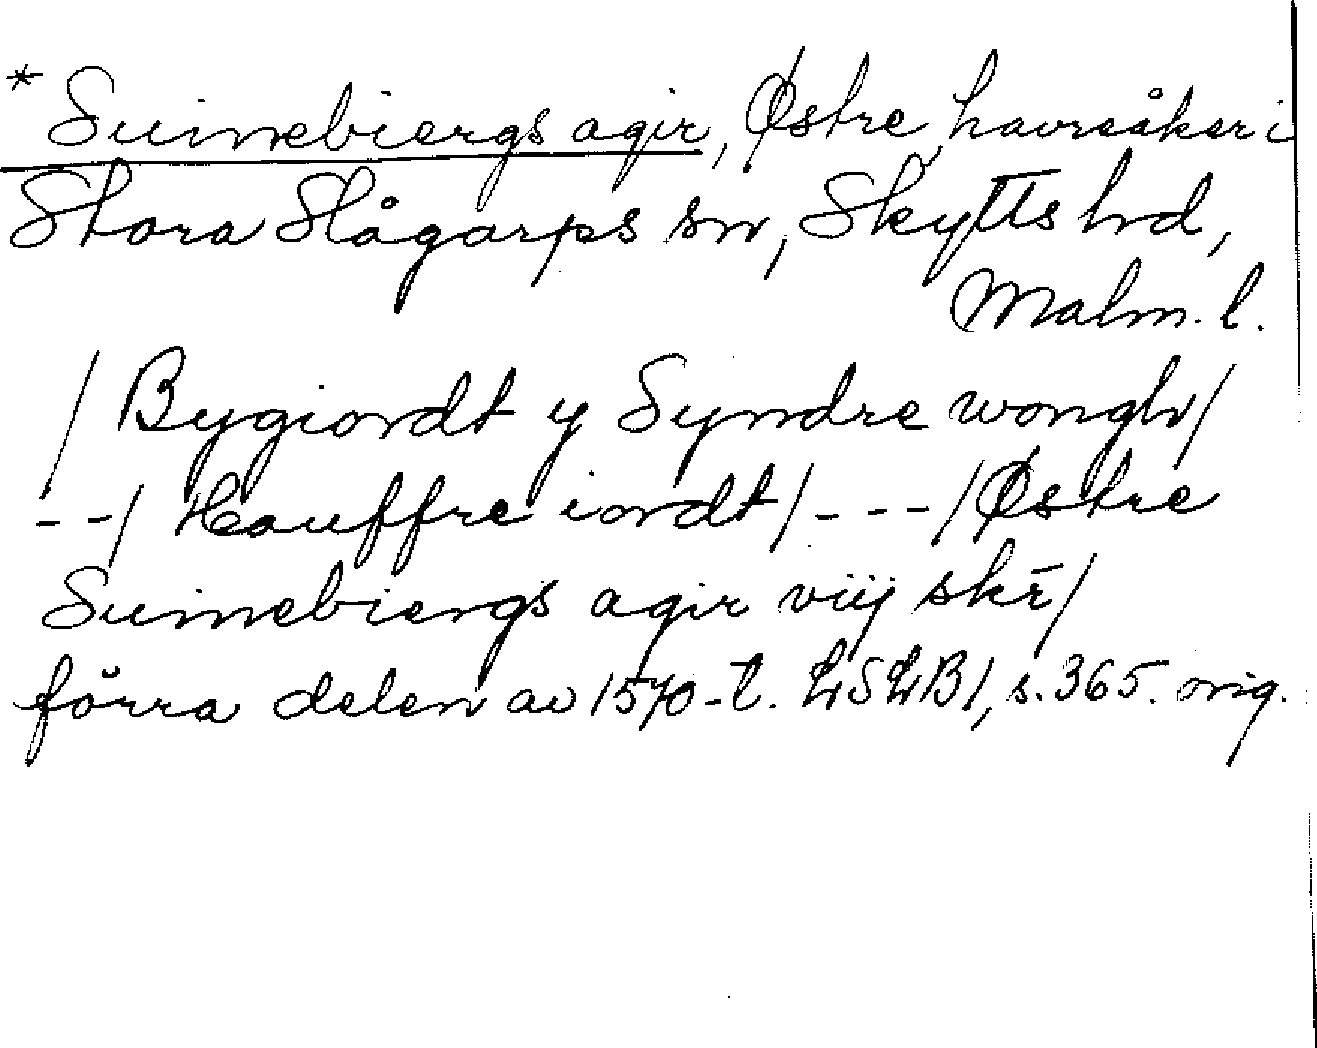 * Suinebiergs agir, Østre, havreåker i
Stora Slågarps sn, Skytts hd,
Malm. l.
/ Bygiordt y Syndre wongh/
- -/ Hauffre iordt/ - - - /Østre
Suinebiergs agir viij skr̄/
förra delen av 1570-t. LSLB1, s. 365. orig.